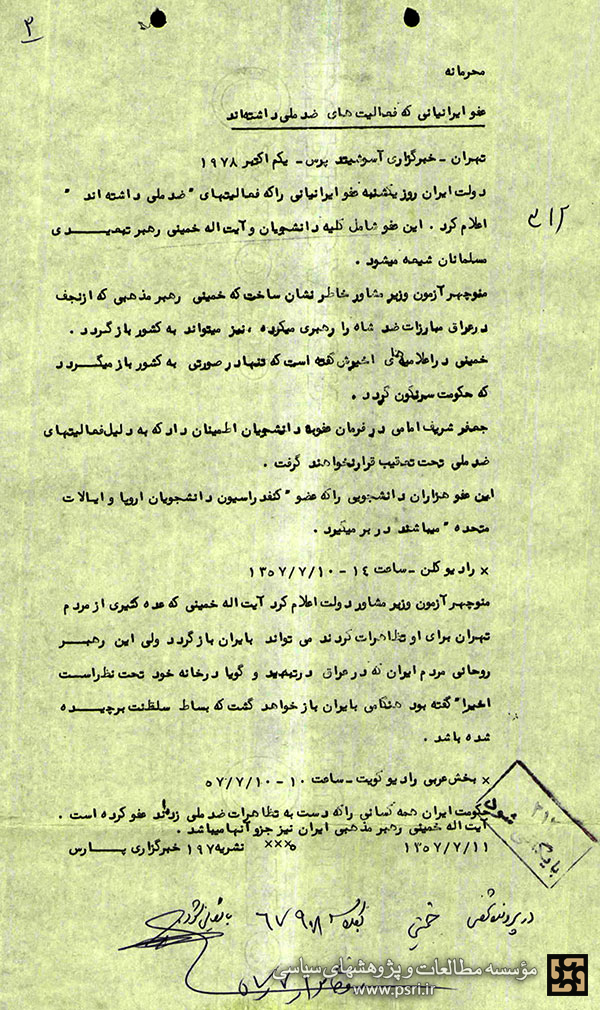 ۲
محرمانه
عفو ایرانیانی که فعالیت های ضد ملی داشته‌اند
تهران - خبرگزاری آسوشیتد پرس - یکم اکتبر ۱۹۷۸
دولت ایران روز یکشنبه عفو ایرانیانی راکه فعالیتهای " ضد ملی داشته اند "
اعلام کرد . این عفو شامل کلیه دانشجویان و آیت اله خمینی رهبر تبعیدی
مسلمانان شیعه میشود .
۳۱۲
منوچهر آزمون وزیر مشاور خاطر نشان ساخت که خمینی رهبر مذهبی که از نجف
درعراق مبارزات ضد شاه را رهبری میکرده ، نیز میتواند به کشور بازگردد .
خمینی در اعلامیه‌های اخیرش گفته است که تنها در صورتی به کشور باز میگردد
که حکومت سرنگون گردد .
جعفر شریف امامی در فرمان عفو به دانشجویان اطمینان داد که به دلیل فعالیتهای
ضد ملی تحت تعقیب قرار نخواهند گرفت .
این عفو هزاران دانشجویی راکه عضو " کنفدراسیون دانشجویان اروپا و ایالات
متحده " میباشند در بر میگیرد .
× رادیو کلن - ساعت ۱۴ - ۱۳۵۷/۷/۱۰
منوچهر آزمون وزیر مشاور دولت اعلام کرد آیت اله خمینی که عده کثیری از مردم
تهران برای او تظاهرات کردند می تواند بایران بازگردد ولی این رهبر
روحانی مردم ایران که در عراق در تبعید و گویا در خانه خود تحت نظر است
اخیرا" گفته بود هنگامی بایران باز خواهد گشت که بساط سلطنت برچیده
شده باشد .
× بخش عربی رادیو کویت - ساعت ۱۰ - ۵۷/۷/۱۰
حکومت ایران همه کسانی راکه دست به تظاهرات ضد ملی زده‌اند عفو کرده است .
آیت اله خمینی رهبر مذهبی ایران نیز جزو آنها میباشد .
۱۳۵۷/۷/۱۱ ××× نشریه ۱۹۷ خبرگزاری پارس
در پرونده شخصی خمینی
مؤسسه مطالعات و پژوهشهای سیاسی
www.psri.ir